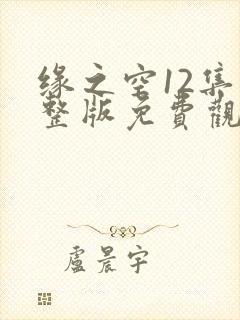 缘之空12集
整版免費觀
盧晨宇